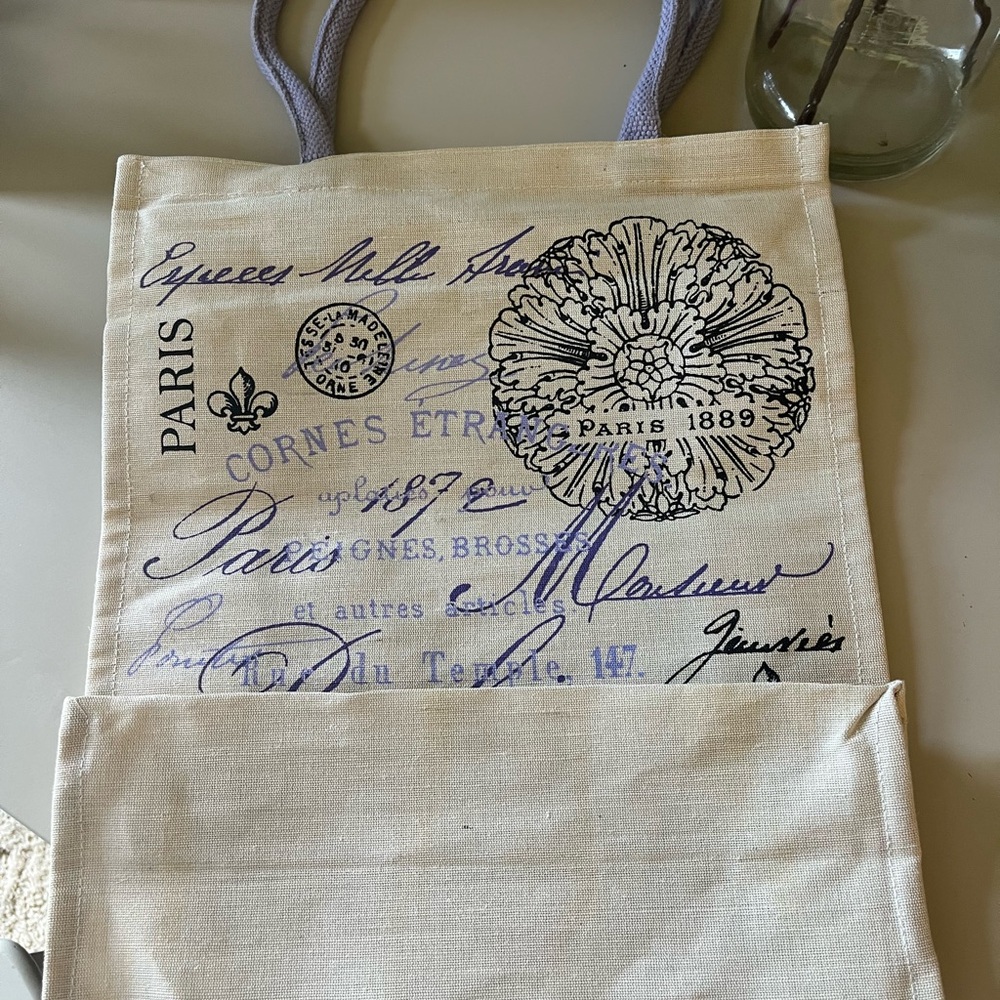 Espèces Mille Francs
PARIS
SSE-LA MADELEINE
30
10
ORNE
PARIS 1889
CORNES ÉTRANGÈRES
1872
pour
Paris
PEIGNES, BROSSES
Monsieur
et autres articles
Janvier
Rue du Temple, 147.